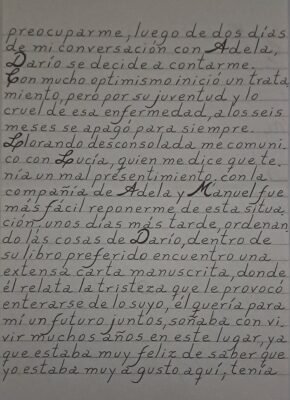 preocuparme, luego de dos días
de mi conversación con Adela,
Darío se decide a contarme.
Con mucho optimismo inició un trata
miento, pero por su juventud y lo
cruel de esa enfermedad, a los seis
meses se apagó para siempre.
Llorando desconsolada me comuni
co con Lucía, quien me dice que te
nía un mal presentimiento, con la
compañia de Adela y Manuel fue
más fácil reponerme de esta situa
ción, unos días más tarde, ordenan
do las cosas de Darío, dentro de
su libro preferido encuentro una
extensa carta manuscrita, donde
él relata la tristeza que le provocó
enterarse de lo suyo, él quería para
mí un futuro juntos, soñaba con vi
vir muchos años en este lugar, ya
que estaba muy feliz de saber que
yo estaba muy a gusto aquí, tenía